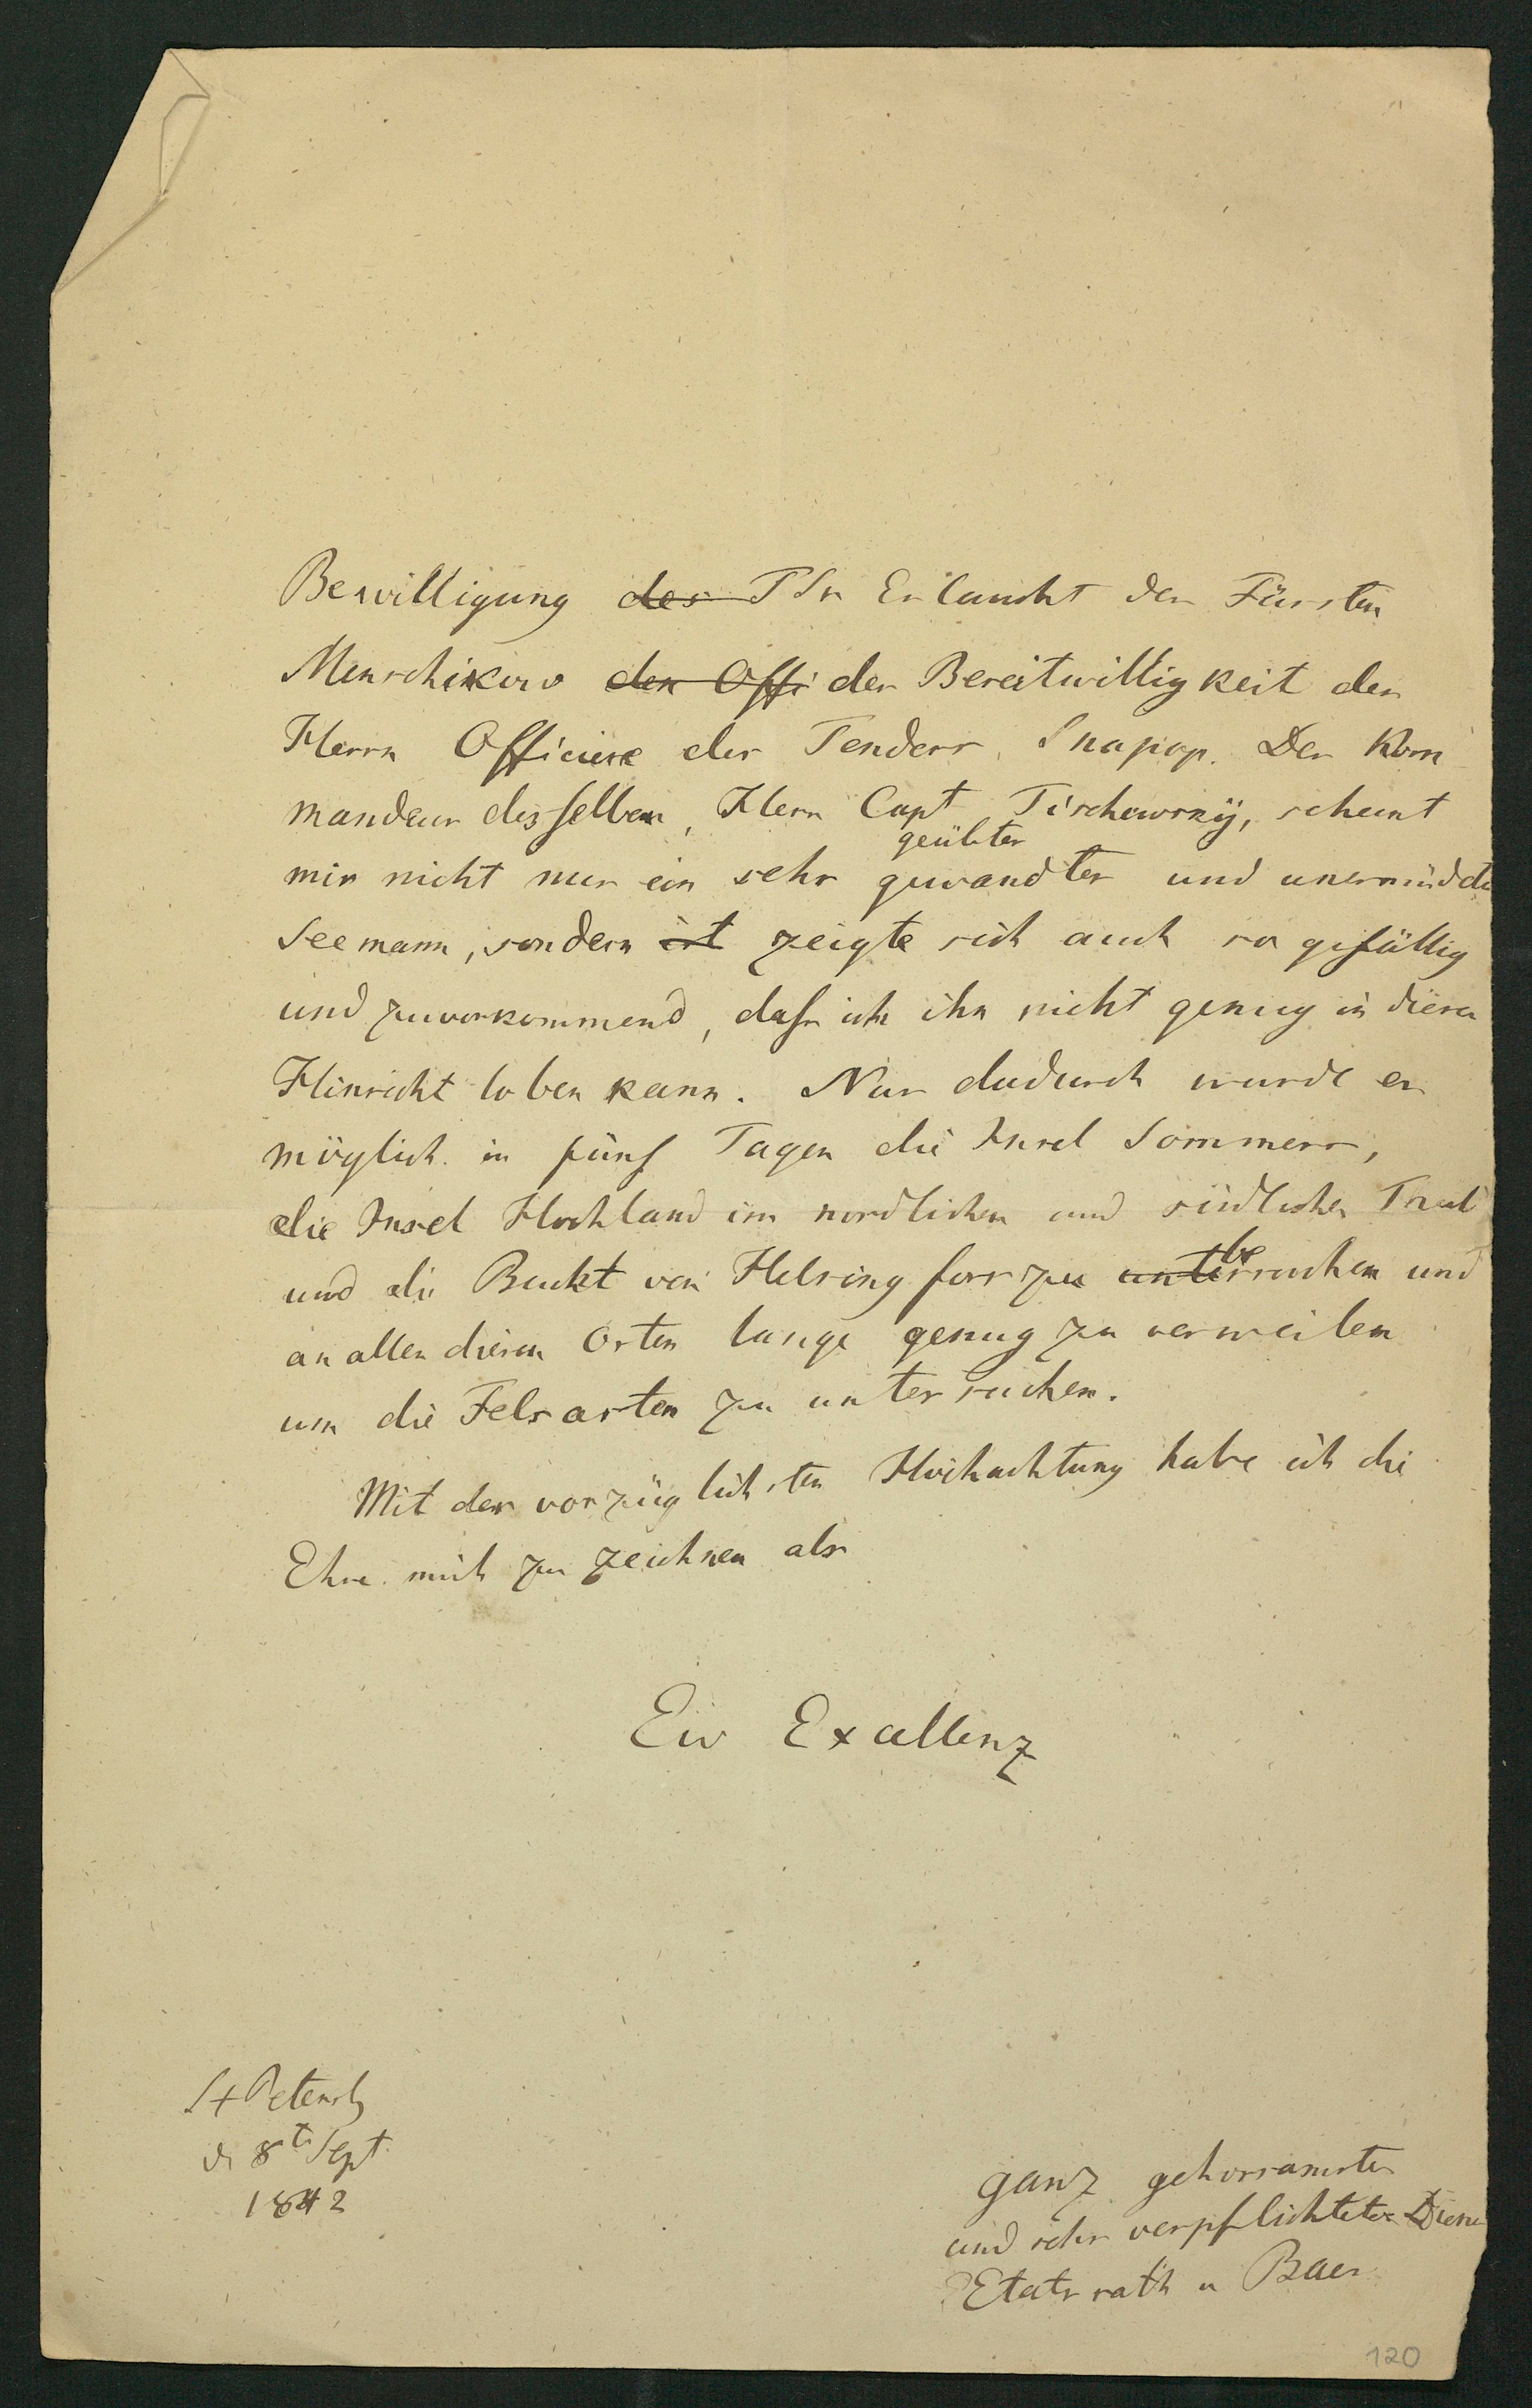 Bewilligung des Sr Erlaucht des Fürsten
Menschikow den Offi der Bereitwilligkeit der
Herrn Officiere des Tenders Snapop. Der Kom
mandeur desselben, Herr Capt Tischewskÿ, scheint
geübter
mir nicht nur ein sehr gewandter und unermüdete
Seemann, sondern ist zeigte sich auch so gefällig
und zuvorkommend, daß ich ihn nicht genug in dieser
Hinsicht loben kann. Nur dadurch wurde es
möglich in fünf Tagen die Insel Sommers,
die Insel Hochland im nordlichen und südlichen Theil
be
und die Bucht von Helsingfors zu untersuchen und
an allen diesen Orten lange genug zu verweilen
um die Felsarten zu untersuchen.
Mit der vorzüglichsten Hochachtung habe ich die
Ehre mich zu zeichnen als
Ew Excellenz
St Petersb
d 8t Sept
1842
ganz gehorsamster
und sehr verpflichteter Diener
Etatsrath v Baer
120